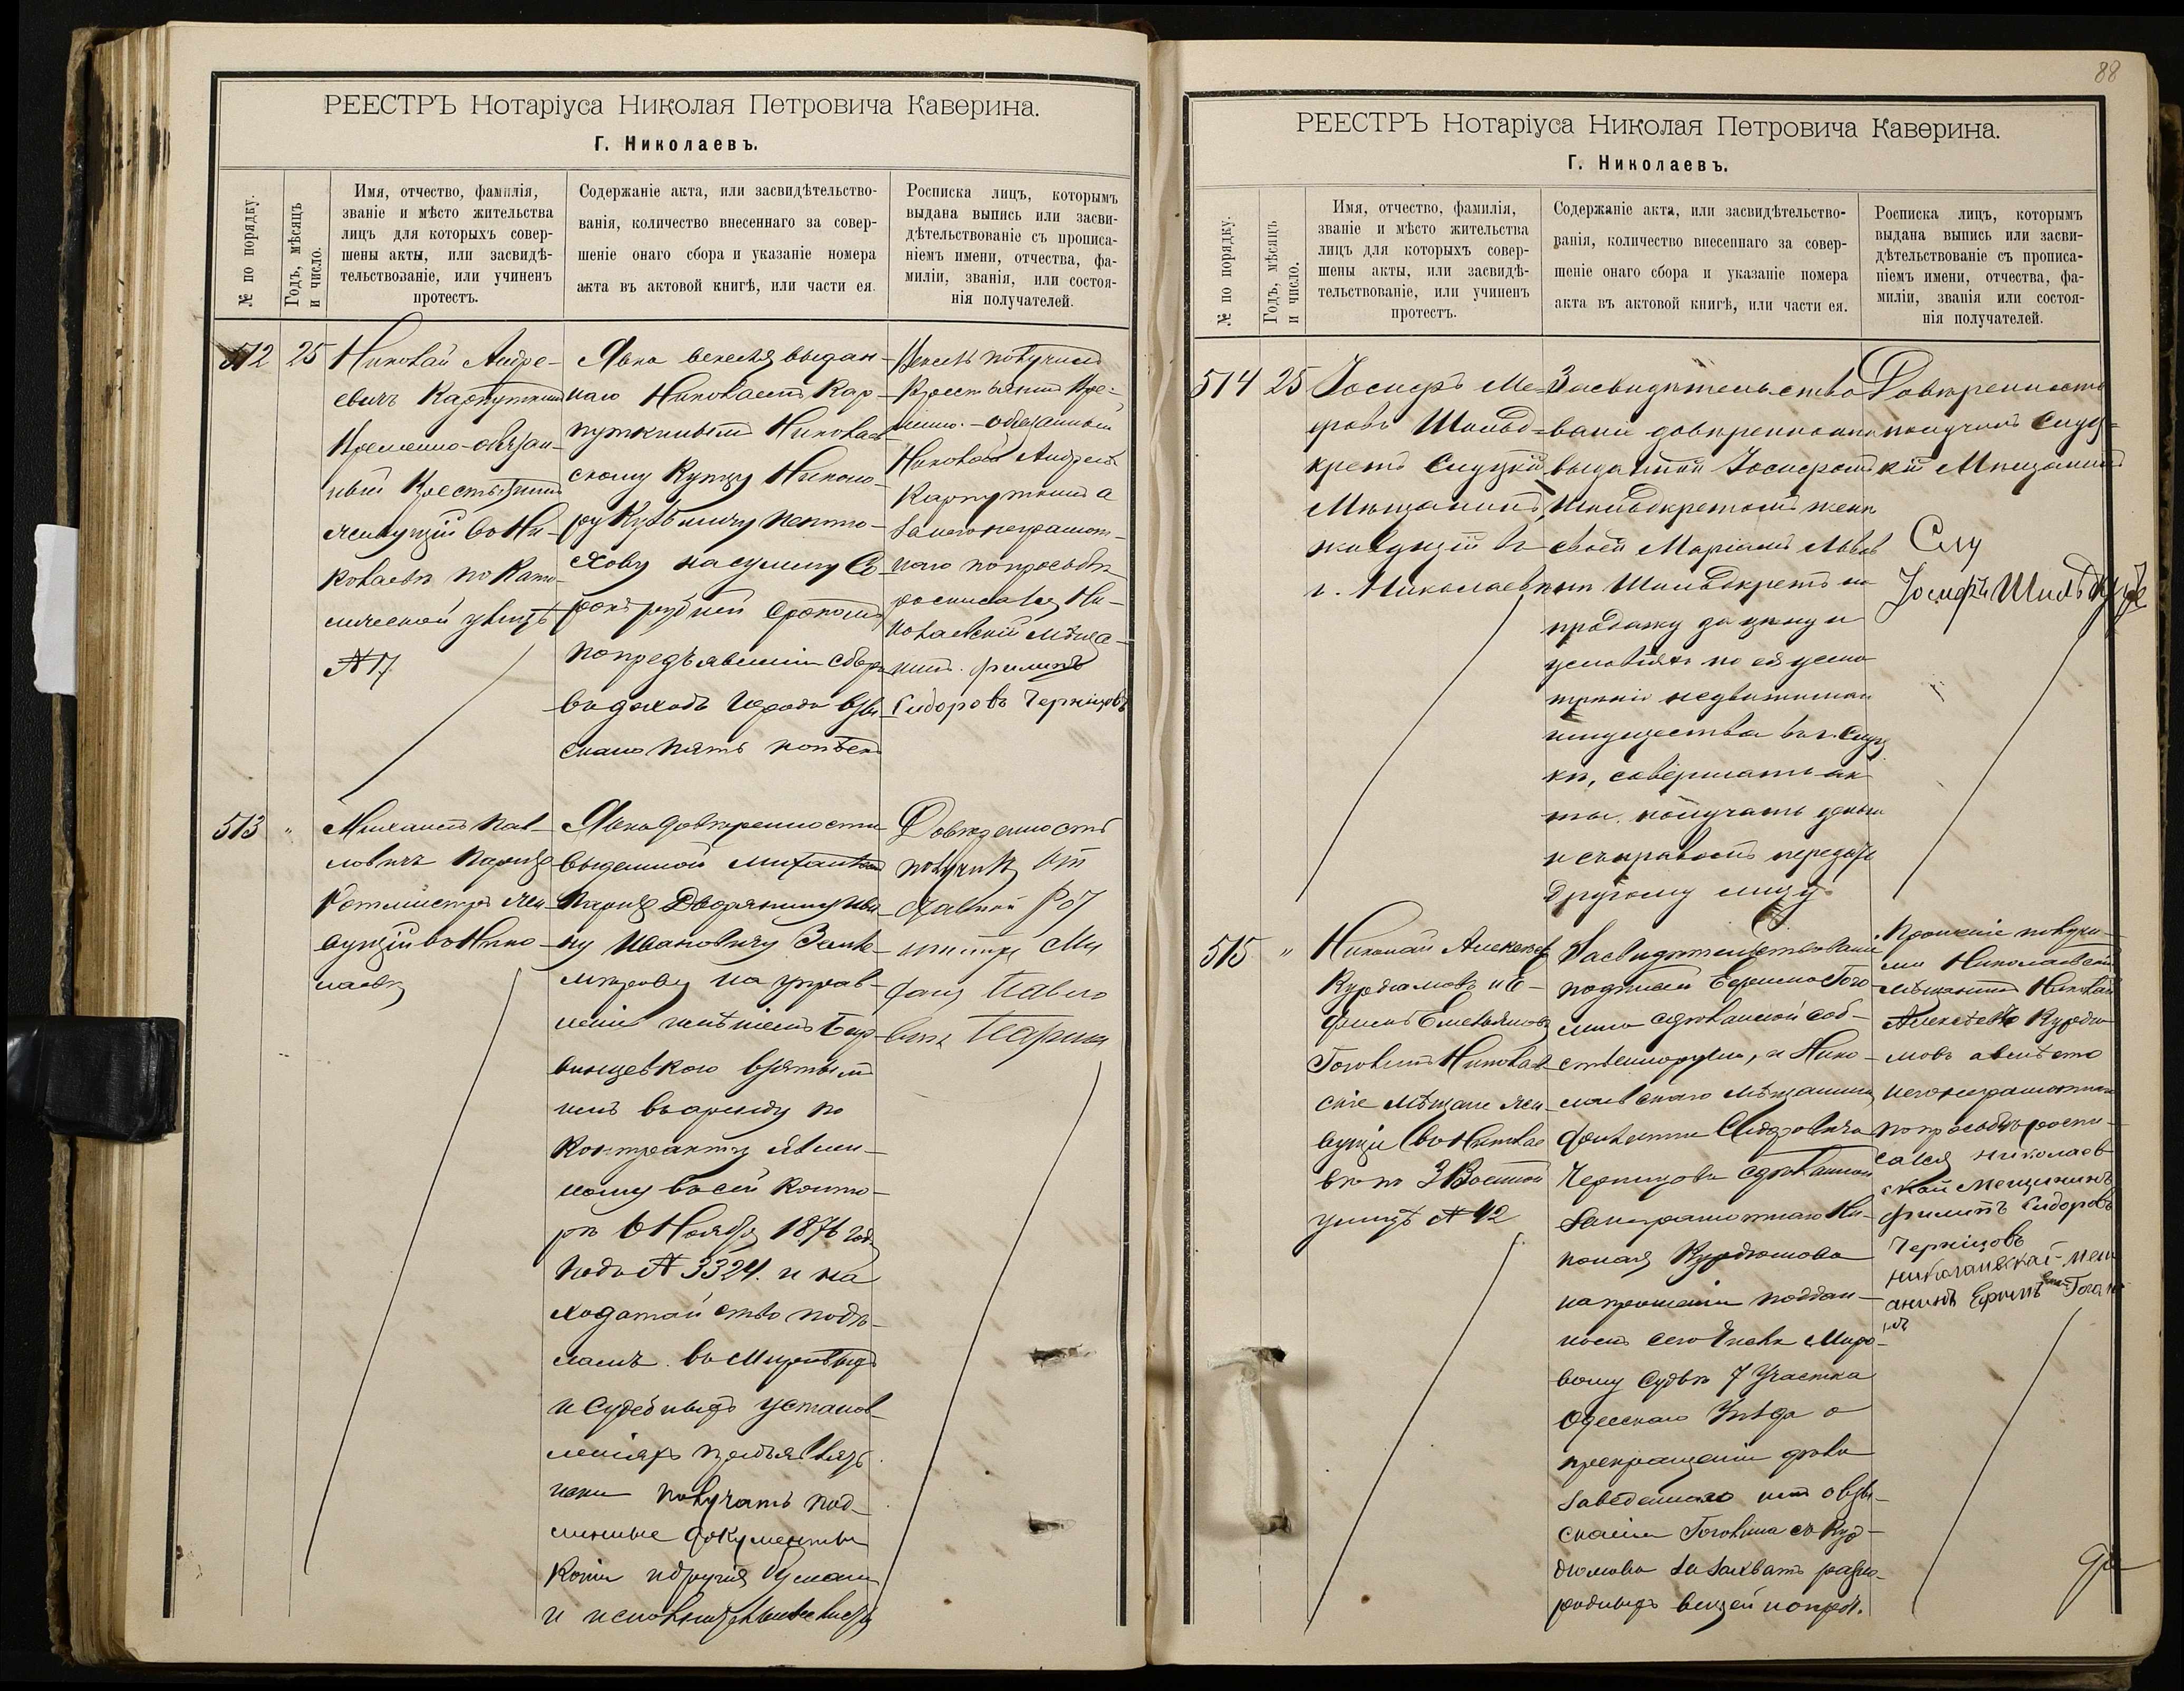 РЕЕСТРЪ Нотаріуса Николая Петровича Каверина.
Г. Николаевъ.
№ по порядку.
Годъ, мѣсяцъ
и число.
Имя, отчество, фамилія,
званіе и мѣсто жительства
лицъ для которыхъ совер-
шены акты, или засвидѣ-
тельствованіе, или учиненъ
протестъ.
Содержаніе акта, или засвидѣтельство-
ванія, количество внесеннаго за совер-
шеніе онаго сбора и указаніе номера
акта въ актовой книгѣ, или части ея.
Росписка лицъ, которымъ
выдана выпись или засви-
дѣтельствованіе съ прописа-
ніемъ имени, отчества, фа-
миліи, званія, или состоя-
нія получателей.
512
25
Николай Андре-
евичъ Карпуткинъ
Временно-обязан-
ный Крестьянинъ
живущій въ Ни-
колаевѣ по Като-
лической улицѣ
№ 17
Явка векселя выдан-
наго Николаемъ Кар-
путкинымъ Николаев-
скому Купцу Никано-
ру Кузьмичу
на сумму Со-
рокъ рублей срокомъ
по предъявленіи сбора
въ доходъ города взы-
скано пять копѣекъ
Вексель получилъ
Крестьянинъ Вре-
менно-обязанный
Николай Андреевъ
Карпуткинъ а
за него неграмот-
наго по просьбѣ
росписался Ни-
колаевскій мѣща-
нинъ филипъ
Сидоровъ Черницовъ
513
"
Михаилъ Пав-
ловичъ
Ротмистръ жи-
вущій въ Нико-
лаевѣ
Явка довѣренности
выданной Михаиломъ
Дворянину Ива-
ну Ивановичу
на управ-
леніе имѣніемъ
взятымъ
имъ въ аренду по
Контракту явлен-
ному въ сей Конто-
рѣ 6 Ноября 1876 года
подъ № 3324. и на
ходатайство по дѣ-
ламъ въ Мировыхъ
и Судебныхъ установ-
леніяхъ предъявлять
иски получать под-
линные документы
Копіи и другія бумаги
и исполнительные листы
Довѣренность
получилъ
Рот
мистръ Ми
хаилъ Павло
вичъ
88
РЕЕСТРЪ Нотаріуса Николая Петровича Каверина.
Г. Николаевъ.
№ по порядку.
Годъ, мѣсяцъ
и число.
Имя, отчество, фамилія,
званіе и мѣсто жительства
лицъ для которыхъ совер-
шены акты, или засвидѣ-
тельствованіе, или учиненъ
протестъ.
Содержаніе акта, или засвидѣтельство-
ванія, количество внесеннаго за совер-
шеніе онаго сбора и указаніе номера
акта въ актовой книгѣ, или части ея.
Росписка лицъ, которымъ
выдана выпись или засви-
дѣтельствованіе съ прописа-
ніемъ имени, отчества, фа-
миліи, званія или состоя-
нія получателей.
514
25
Іосифъ Ме-
еровъ Шильд-
кретъ Слуцкій
Мѣщанинъ,
живущій въ
г. Николаевѣ
Засвидѣтельство-
ваніе довѣренности
выданной Іосифомъ
Шильдкретомъ женѣ
своей Маріамъ
Шильдкретъ на
продажу за цѣну и
условіяхъ по ея усмо-
трѣнію недвижимаго
имущества въ г. Слуц
кѣ, совершать ак-
ты, получать деньги
и съ правомъ передачи
другому лицу.
Довѣренность
получилъ Слуц-
кій Мѣщанинъ
Слу
Іосифъ Шильдкретъ
515
"
Николай Алексѣевъ
Курдюмовъ и Е-
фимъ Емельяновъ
Гоголинъ Николаев-
скіе Мѣщане жи-
вущіе въ Николае
вѣ по 3 Военной
улицѣ № 42
Засвидѣтельствованіе
подписи Ефима Гого-
лина сдѣланной соб-
ственноручно, и Нико-
лаевскаго мѣщанина
Филиппа Сидоровича
Черницова сдѣланной
за неграмотнаго Ни-
колая Курдюмова
на прошеніи поддан-
номъ сего Мѣсяца Миро-
вому Судьѣ 7 Участка
Одесскаго Уѣзда о
прекращеніи дѣла
заведеннаго имъ о взы-
сканіи Гоголина съ Кур-
дюмова за захватъ разно-
родныхъ вещей и проч.
Прошеніе получи-
ли Николаевскій
мѣщанинъ Николай
Алексѣевъ Курдю-
мовъ а вмѣсто
него неграмотнаго
по просьбѣ роспи-
сался николаев
ской мещининъ
филипъ Сидоровъ
Черницовъ
николаевскай мещ
анинъ Ефимъ Гогали
нъ